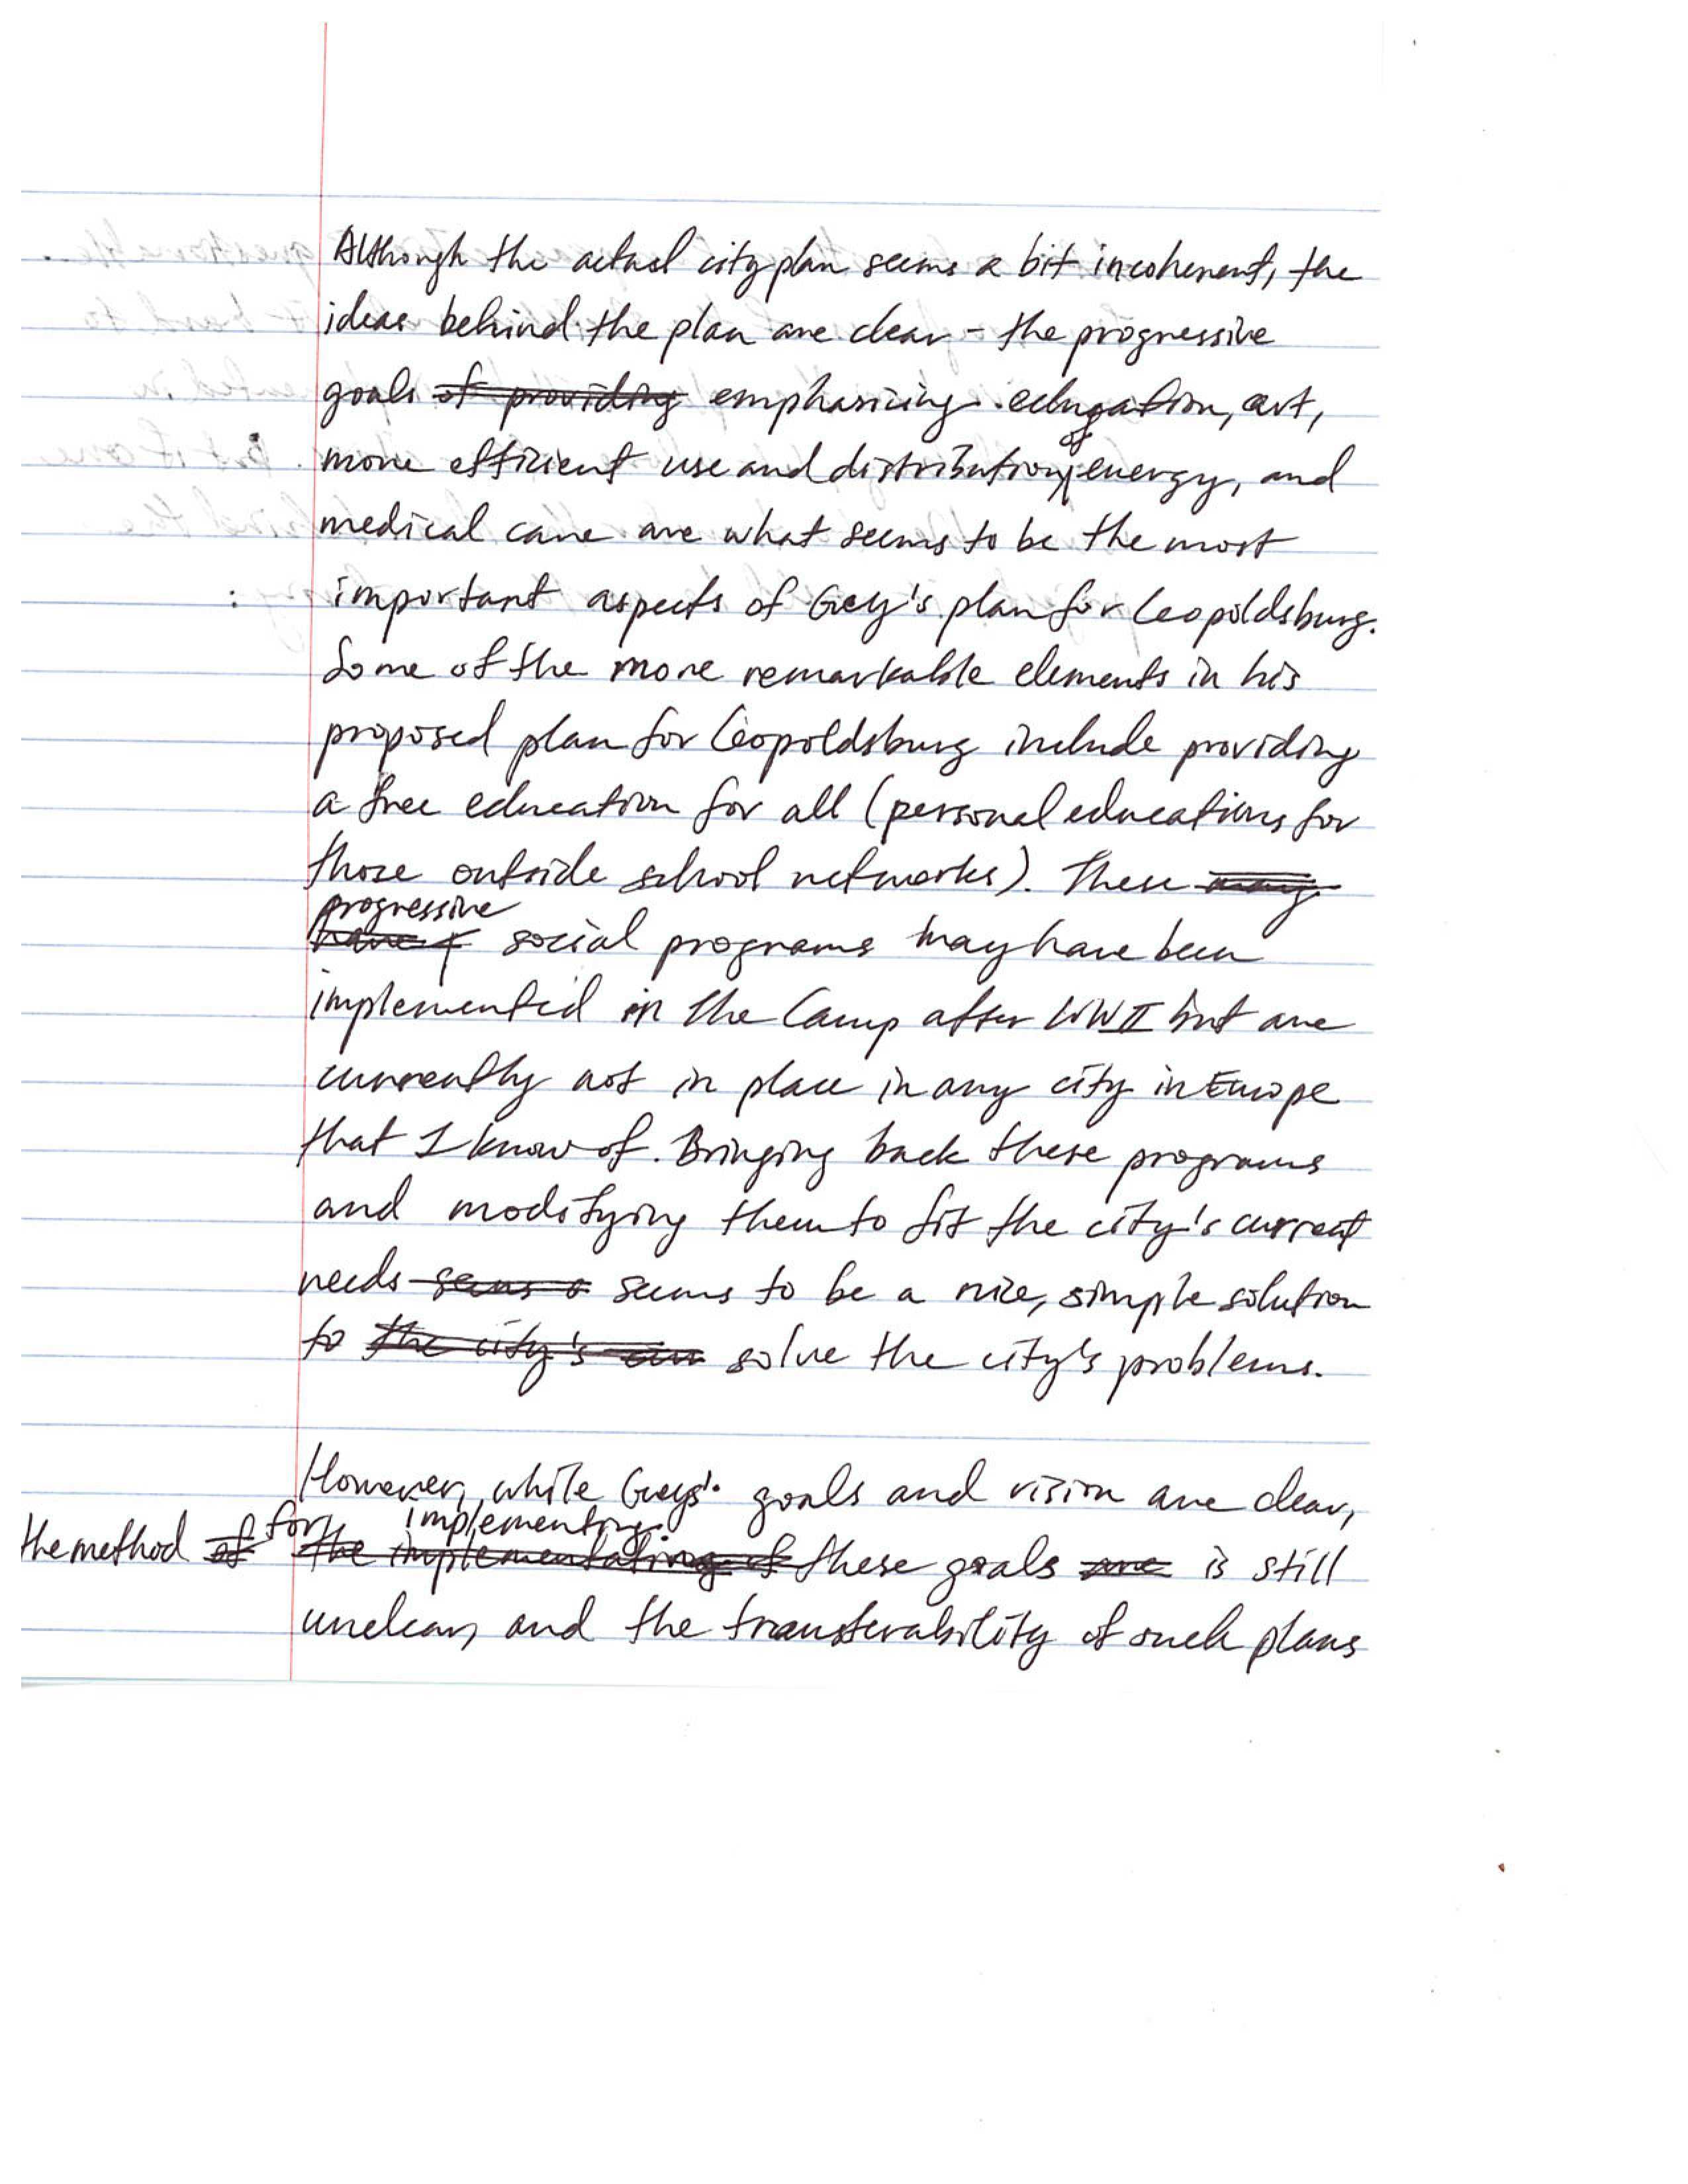 Although the actual city plan seems a bit incoherent, the
ideas behind the plan are clear - the progressive
goals of providing emphasizing education, art,
more efficient use and distribution of energy, and
medical care are what seems to be the most
important aspects of Guy's plan for Leopoldsburg.
Some of the more remarkable elements in his
proposed plan for Leopoldsburg include providing
a free education for all (personal educations for
those outside school networks). These many
progressive
have social programs may have been
implemented in the Camp after WWII but are
currently not in place in any city in Europe
that I know of. Bringing back these programs
and modifying them to fit the city's current
needs seems to be a nice, simple solution
to the city's solve the city's problems.
However, while Guy's goals and vision are clear,
for implementing
the method of the implementating of these goals are is still
unclear, and the transferability of such plans